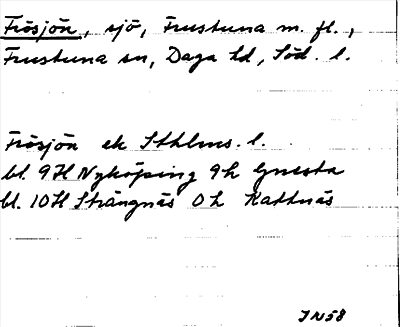 Frösjön, sjö, Frustuna m. fl.,
Frustuna sn, Daga hd, Söd. l.
Frösjön ek Sthlms. l.
bl. 9H Nyköping 9h Gnesta
bl. 10H Strängnäs 0h Kattnäs
JN58